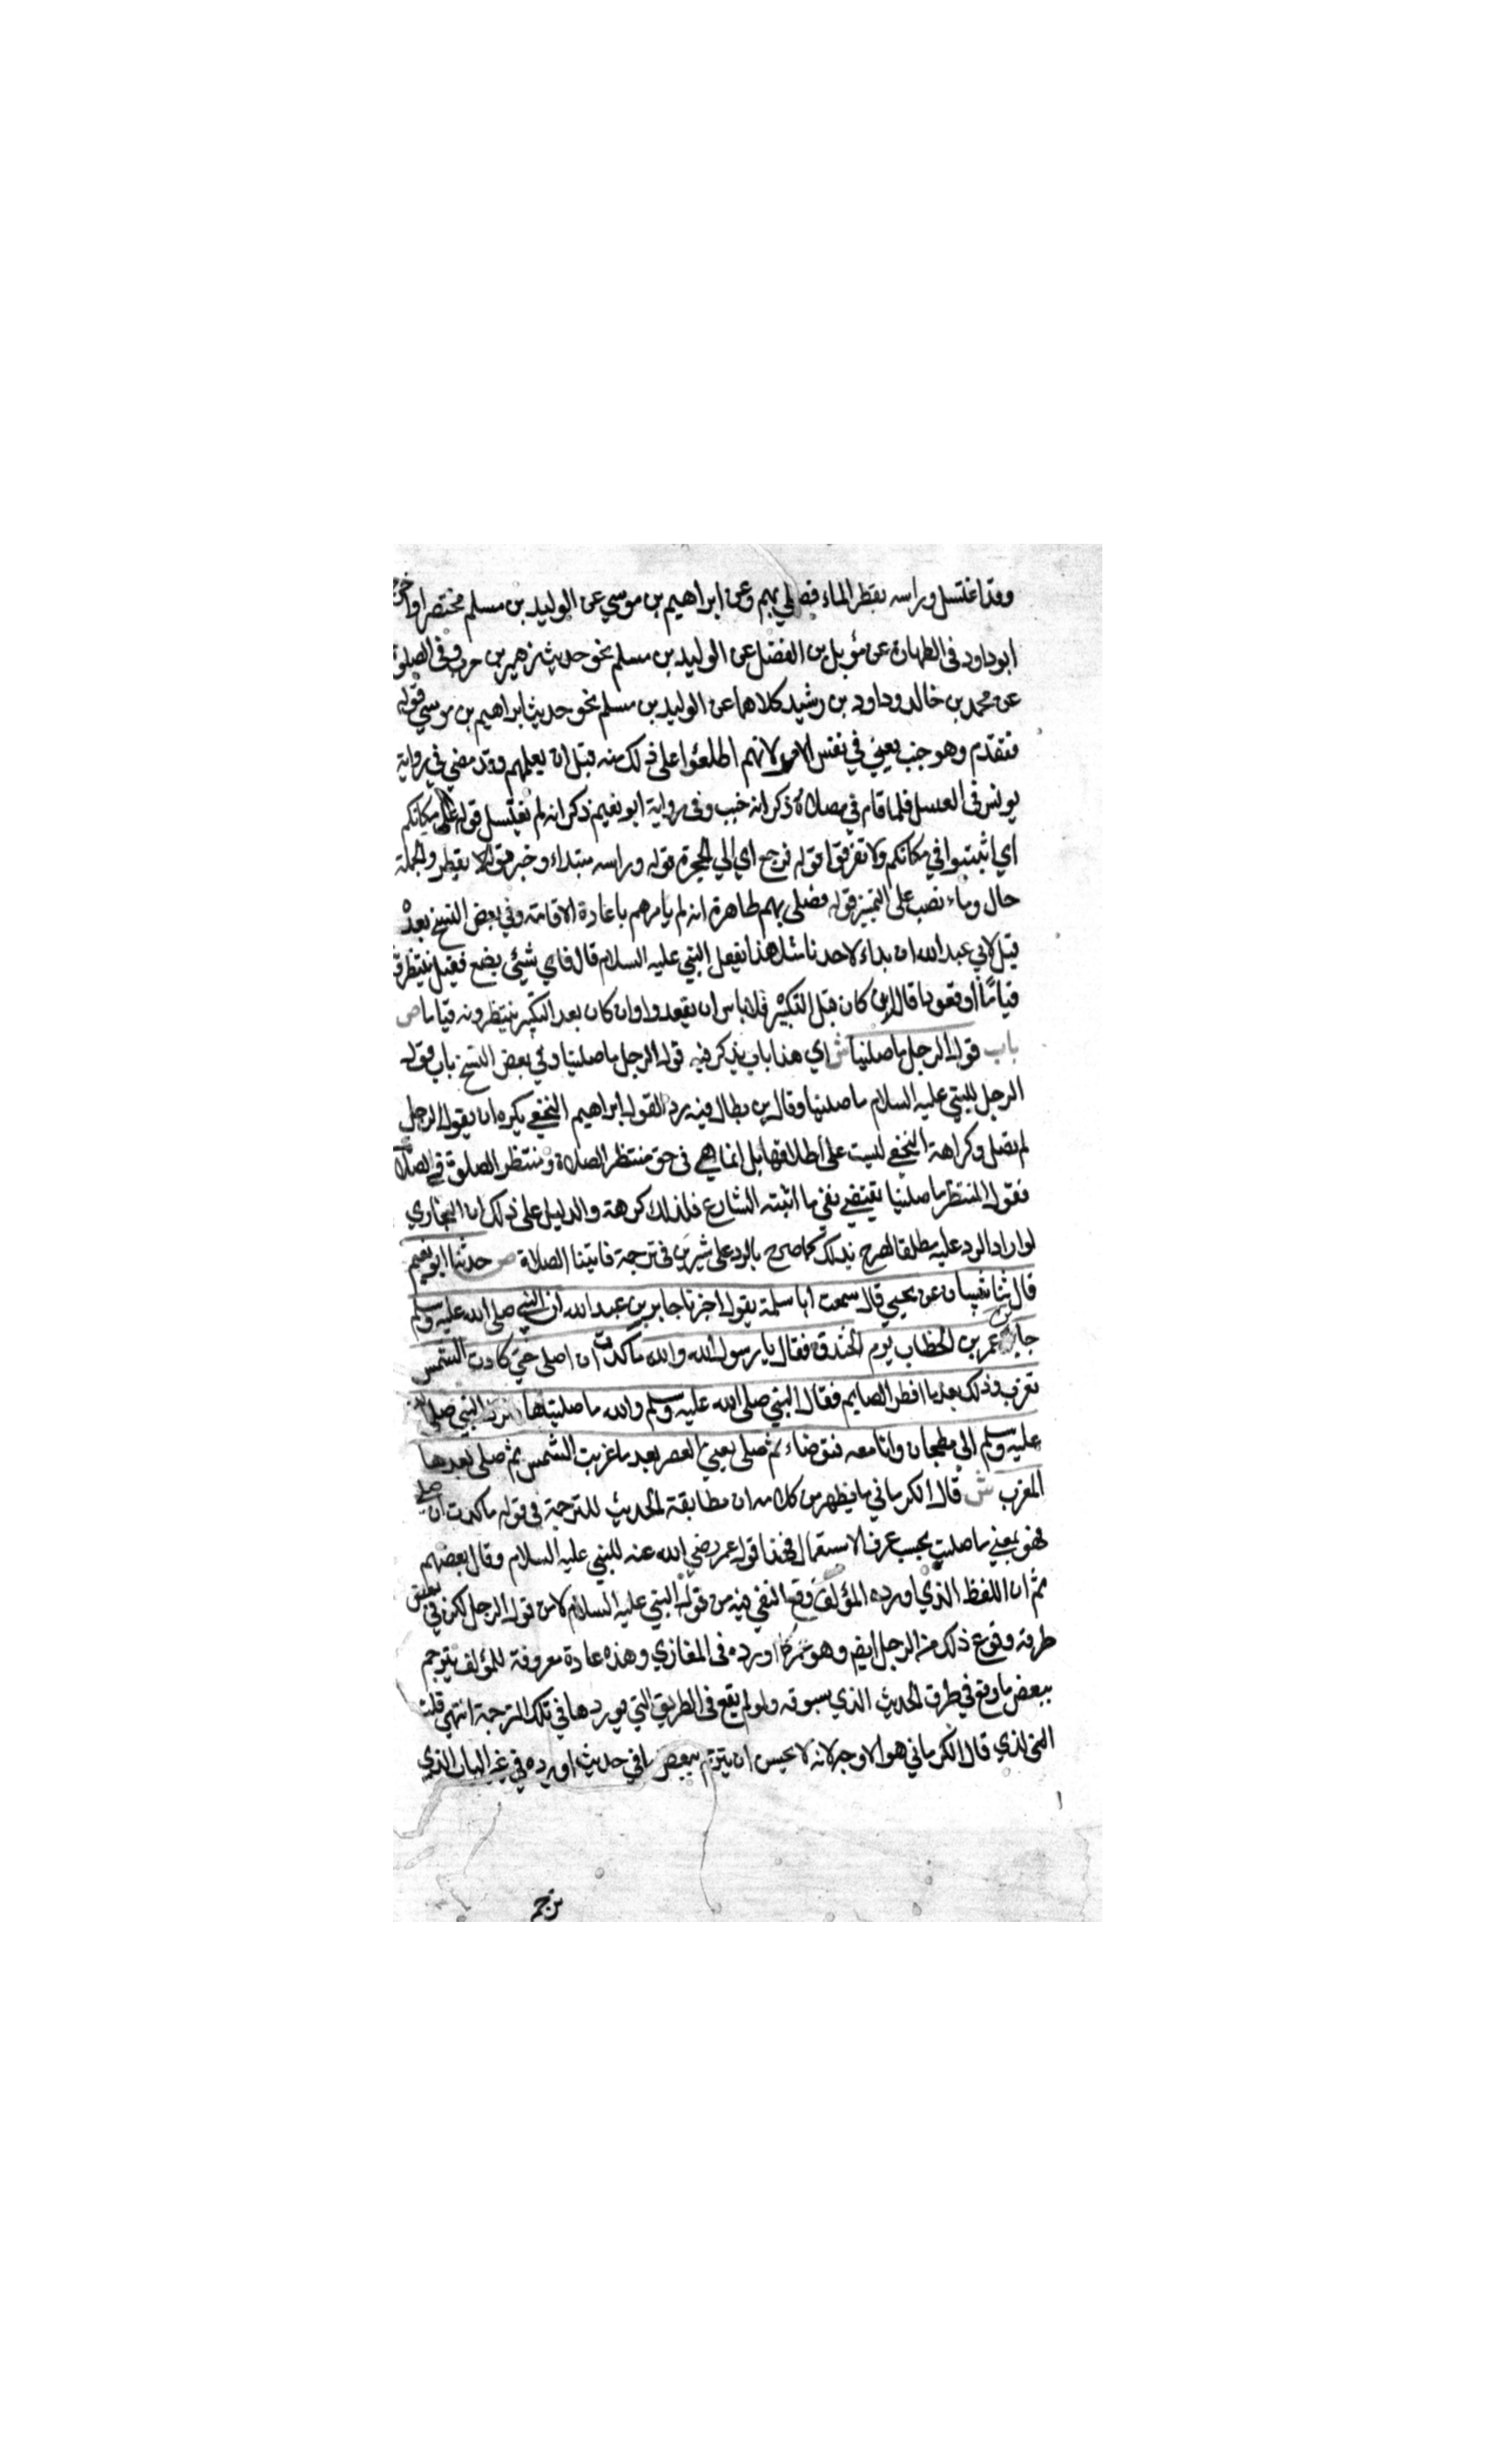 وقد اغتسل وراسه يقطر الماء فصلي بهم وعن ابراهيم بن موسي عن الوليد بن مسلم مختصرا واخرجه
ابو داود في الطهارة عن مؤيل بن الفضل عن الوليد بن مسلم نحو حديث زهير بن حرب وفي الصلوة
عن محمد بن خالد وداود بن رشيد كلاهما عن الوليد بن مسلم نحو حديث ابراهيم بن موسي قوله
فتقدم وهو جنب يعني في نفس الامر لانهم اطلعوا علي ذلك منه قبل ان يعلمهم وقد مضي في رواية
يونس في الغسل فلما قام في مصلاه ذكر انه جنب وفي رواية ابو نعيم ذكر انه لم يغتسل قوله علي مكانكم
اي اثبتوا في مكانكم ولا تفرقوا قوله فرجع اي الي الحجرة قوله وراسه مبتداء وخبره قوله يقطر والجملة
حال وماء نصب علي التميز قوله فصلي بهم ظاهرة انه لم يامرهم باعادة الاقامة وفي بعض النسخ بعده
قيل لابي عبد الله ان بداء لاحدنا مثل هذا يفعل النبي عليه السلام قال فاي شيئي يضع فقيل ينتظرونه
قياما او قعودا قال ان كان قبل التكبير فلا باس ان يقعدوا وان كان بعد التكبير ينتظرونه قياما ص
باب قول الرجل ما صلينا ش اي هذا باب يذكر فيه قول الرجل ما صلينا وفي بعض النسخ باب قول
الرجل للنبي عليه السلام ما صلينا وقال بن بطال فيه رد لقول ابراهيم النخعي يكره ان يقول الرجل
لم نصل وكراهة النخعي ليست علي اطلاقها بل انما هي في حق منتظر الصلاة ومنتظر الصلوة في الصلاة
فقول المنتظر ما صلينا يقتضي نفي ما اثبته الشارع فلذلك كرهه والدليل علي ذلك ان البخاري
لو اراد الرد عليه مطلقا لصرح بذلك كما صرح بالرد علي سيرين في ترجمة فاتتنا الصلاة ص حدثنا ابو نعيم
قال ثنا شيبان عن يحيي قال سمعت ابا سلمة يقول اخبرنا جابر بن عبد الله ان النبي صلي الله عليه وسلم
جاءه عمر بن الخطاب يوم الخندق فقال يا رسول الله والله ما كدت ان اصلي حتي كادت الشمس
تغرب وذلك بعد ما افطر الصايم فقال النبي صلي الله عليه وسلم والله ما صليتها فنزل النبي صلي الله
عليه وسلم الي بطحان وانا معه فتوضاء ثم صلي يعني العصر بعد ما غربت الشمس ثم صلي بعدها
المغرب ش قال الكرماني ما يظهر من كلامه ان مطابقة الحديث للترجمة في قوله ما كدت ان اصلي
فهو بمعني ما صليت بحسب عرف الاستعمال فهذا قول عمر رضي الله عنه للنبي عليه السلام وقال بعضهم
ثم ان اللفظ الذي اورده المؤلف وقع النفي فيه من قول النبي عليه السلام لا من قول الرجل لكن في بعض
طرقه وقوع ذلك من الرجل ايضا وهو عمر كما اورده في المغازي وهذه عادة معروفة للمؤلف يترجم
ببعض ما وقع في طرق الحديث الذي يسوقه ولو لم يقع في الطريق التي يوردها في تلك الترجمة انتهي قلت
الذي قال الكرماني هو الاوجه لانه لا يحسن ان يترجم ببعض ما في حديث اورده في غير الباب الذي
ترجم